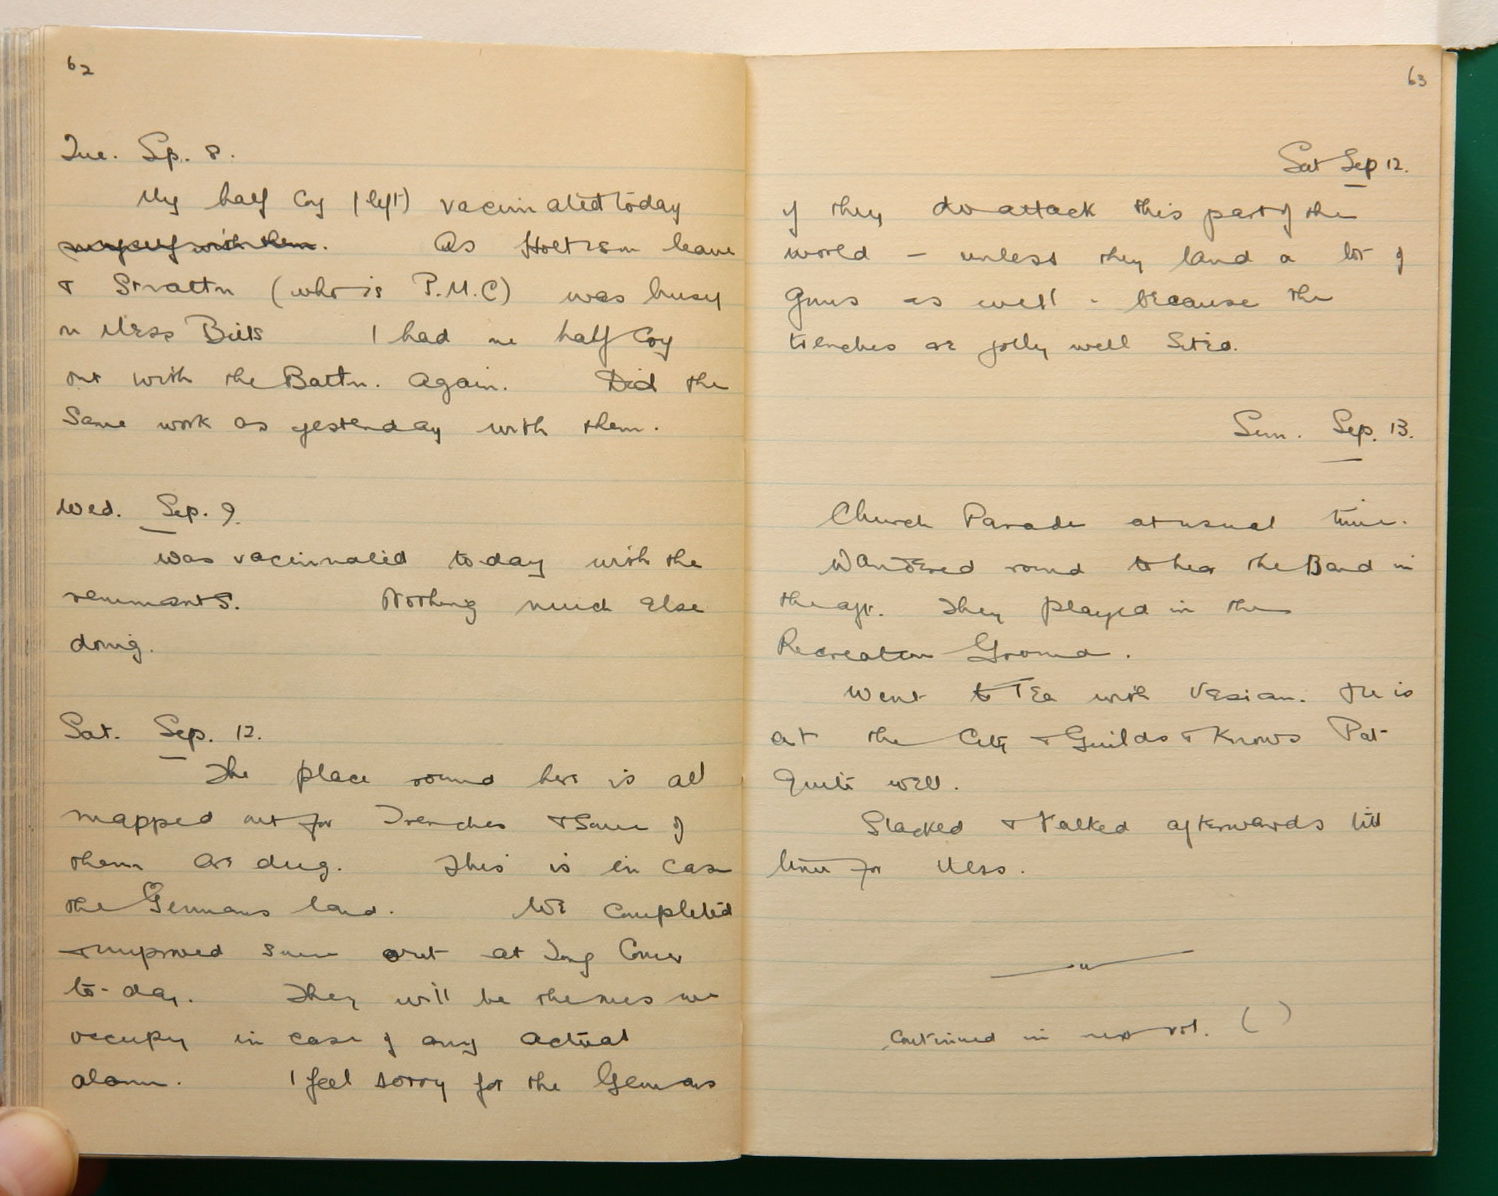 62
Tue. Sep. 8.
My half Coy (left) vaccinated today
myself with them. As Holt is on leave
& Stratton (who is P.M.C) was busy
on Mess Bills I had one half Coy
out with the Battn. again. Did the
same work as yesterday with them.
Wed. Sep. 9.
Was vaccinated to-day with the
remnants. Nothing much else
doing.
Sat. Sep. 12.
The place round here is all
mapped out for Trenches & some of
them are dug. This is in case
the Germans land. We completed
& improved some out at Long
to-day. They will be the ones we
occupy in case of any actual
alarm. I feel sorry for the Germans
63
Sat Sep 12.
if they do attack this part of the
world - unless they land a lot of
guns as well - because the
trenches are jolly well sited.
Sun. Sep. 13.
Church Parade at usual time.
Wandered round to hear the Band in
the aft. They played in the
Recreation Ground.
Went to Tea with Vesian. He is
at the City & Guilds & knows Pat
quite well.
Slacked & talked afterwards till
time for Mess.
Continued in next vol. ( )